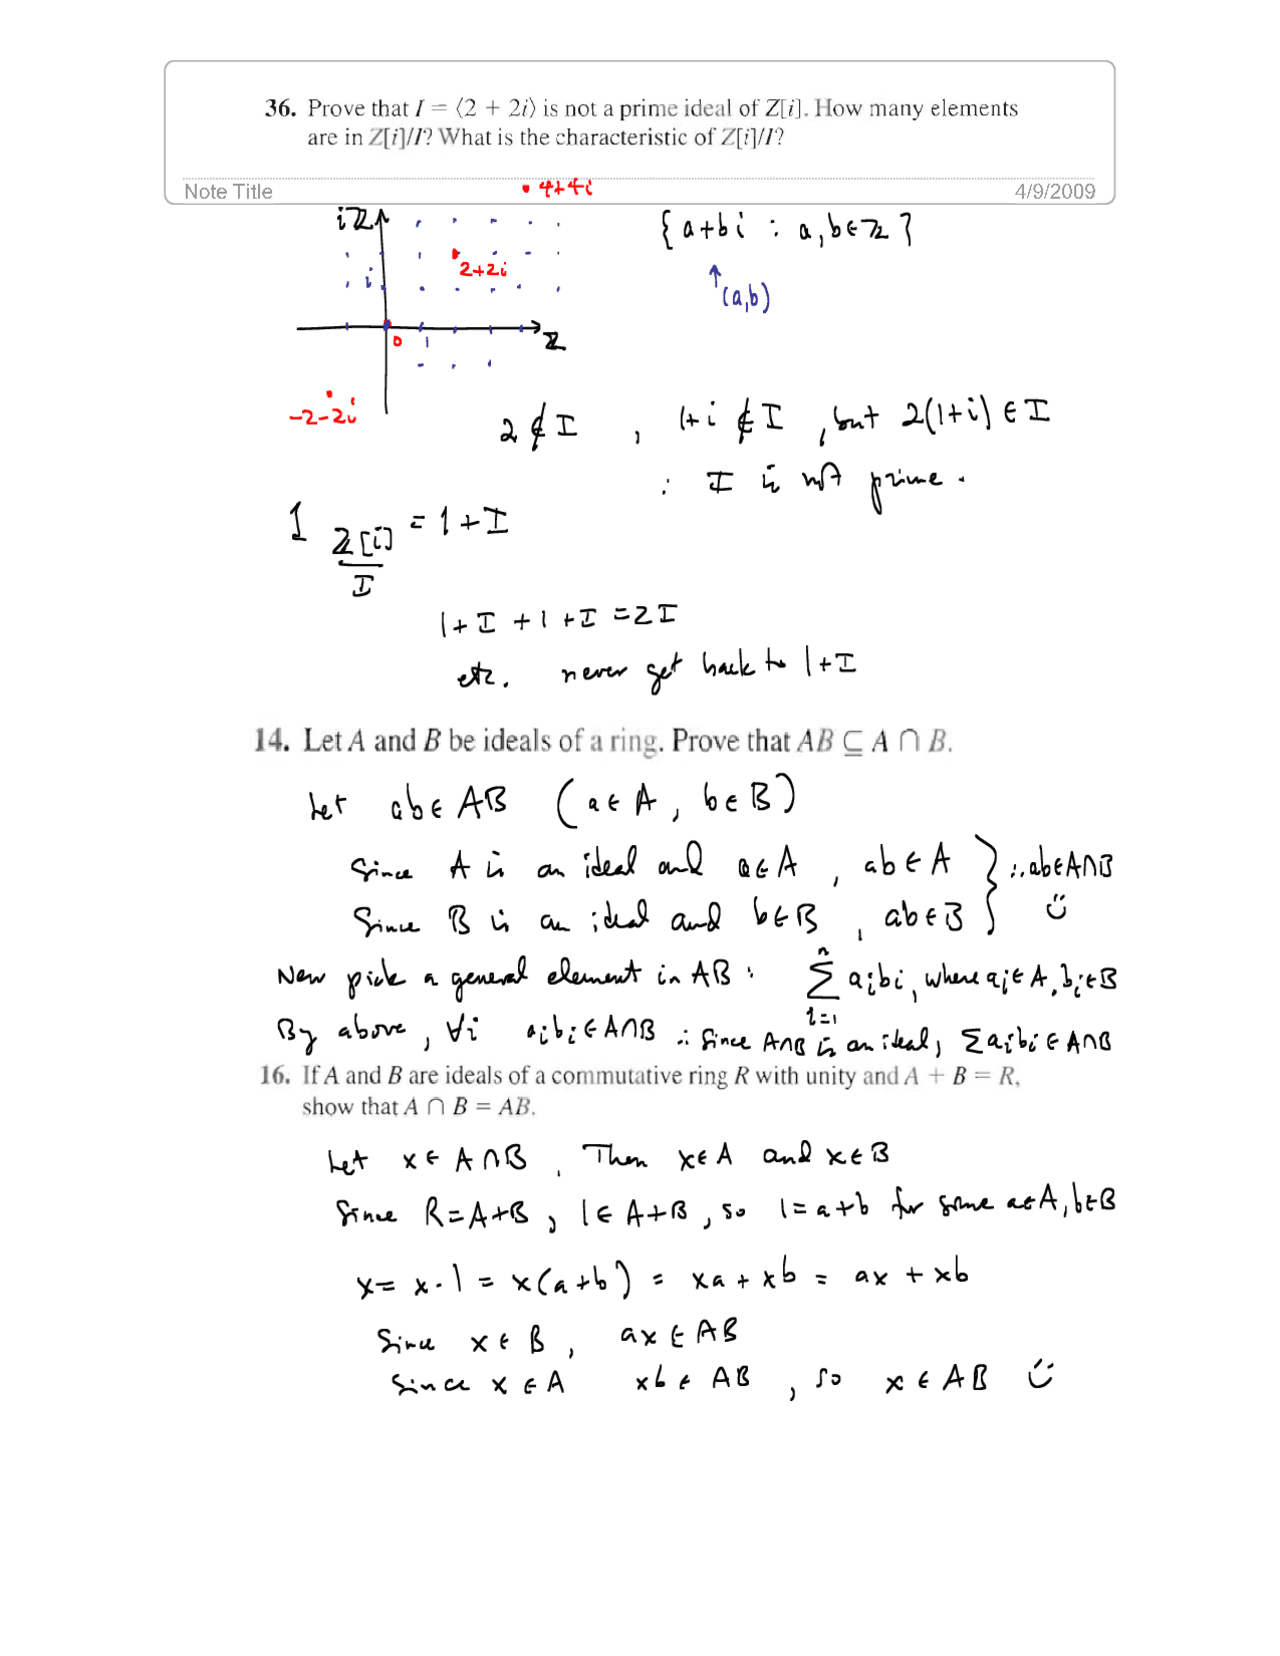 36. Prove that I = ⟨2 + 2i⟩ is not a prime ideal of Z[i]. How many elements
are in Z[i]/I? What is the characteristic of Z[i]/I?
Note Title
4+4i
4/9/2009
iZ
{a+bi : a,b∈Z}
2+2i
i
(a,b)
0 1
Z
-2-2i
2∉I , 1+i ∉ I , but 2(1+i) ∈ I
∴ I is not prime.
1 Z[i]/I = 1+I
1+I +1+I = 2I
etc. never get back to 1+I
14. Let A and B be ideals of a ring. Prove that AB ⊆ A ∩ B.
Let ab∈AB (a∈A, b∈B)
Since A is an ideal and a∈A , ab∈A } ∴ab∈A∩B
Since B is an ideal and b∈B , ab∈B ☺
Now pick a general element in AB: ∑_{i=1}^{n} a_i b_i, where a_i∈A, b_i∈B
By above, ∀i a_i b_i∈A∩B ∴ Since A∩B is an ideal, ∑a_i b_i∈A∩B
16. If A and B are ideals of a commutative ring R with unity and A + B = R,
show that A ∩ B = AB.
Let x∈A∩B. Then x∈A and x∈B
Since R=A+B, 1∈A+B, so 1=a+b for some a∈A, b∈B
x= x·1 = x(a+b) = xa + xb = ax + xb
Since x∈B, ax∈AB
Since x∈A xb∈AB , so x∈AB ☺